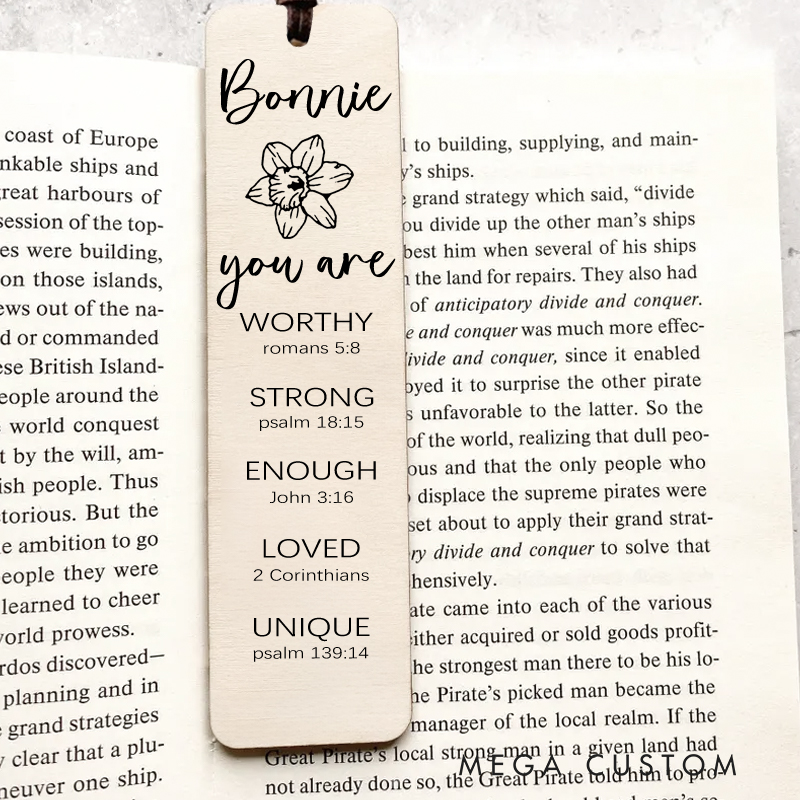 Bonnie
you are
WORTHY
romans 5:8
STRONG
psalm 18:15
ENOUGH
John 3:16
LOVED
2 Corinthians
UNIQUE
psalm 139:14
coast of Europe
nkable ships and
great harbours of
session of the top-
es were building,
on those islands,
ews out of the na-
d or commanded
ese British Island-
eople around the
world conquest
t by the will, am-
ish people. Thus
torious. But the
e ambition to go
eople they were
learned to cheer
world prowess.
rdos discovered—
planning and in
grand strategies
y clear that a plu-
neuver one ship.
l to building, supplying, and main-
y's ships.
grand strategy which said, “divide
ou divide up the other man's ships
best him when several of his ships
the land for repairs. They also had
of anticipatory divide and conquer.
e and conquer was much more effec-
ivide and conquer, since it enabled
oyed it to surprise the other pirate
s unfavorable to the latter. So the
of the world, realizing that dull peo-
ous and that the only people who
displace the supreme pirates were
set about to apply their grand strat-
ry divide and conquer to solve that
hensively.
ate came into each of the various
either acquired or sold goods profit-
he strongest man there to be his lo-
he Pirate's picked man became the
manager of the local realm. If the
Great Pirate's local strong-man in a given land had
not already done so, the Great Pirate told him to pro-
MEGA CUSTOM